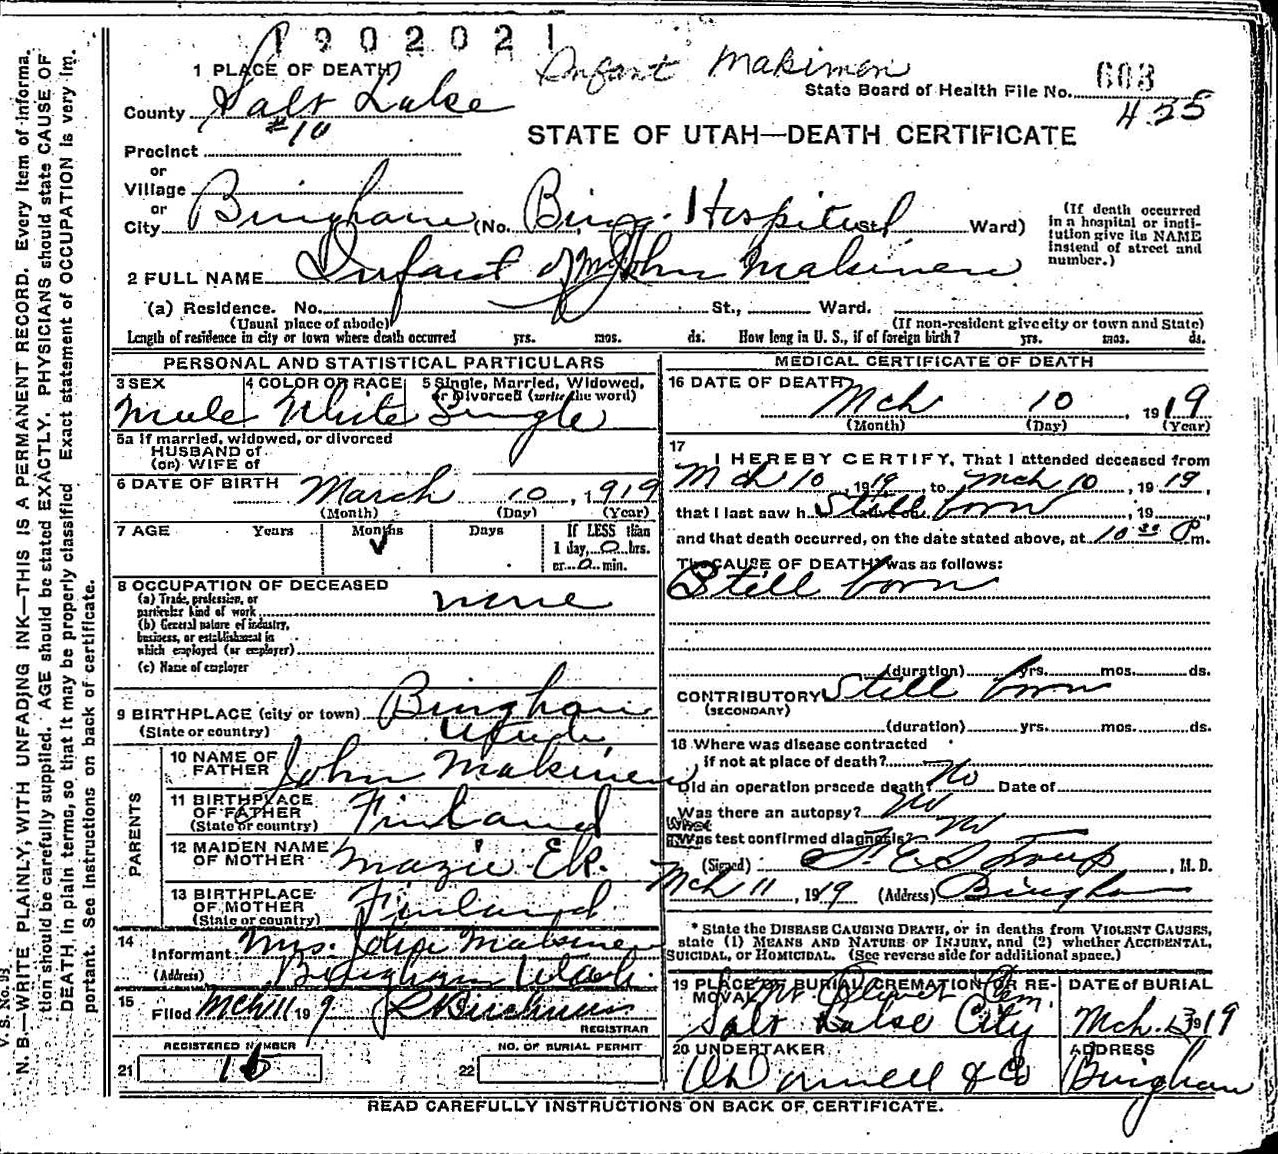 1902021
Infant Makinen
1 PLACE OF DEATH
State Board of Health File No. 603
County Salt Lake
425
#10
STATE OF UTAH—DEATH CERTIFICATE
Precinct
or
Village
or
City Bingham (No. Bing. Hospital St. Ward)
(If death occurred in a hospital or insti-
tution give its NAME instead of street and number.)
2 FULL NAME Infant of Mr John Makinen
(a) Residence. No. St., Ward.
(Usual place of abode)
(If non-resident give city or town and State)
Length of residence in city or town where death occurred yrs. mos. ds. How long in U. S., if of foreign birth? yrs. mos. ds.
PERSONAL AND STATISTICAL PARTICULARS
3 SEX 4 COLOR OR RACE 5 Single, Married, Widowed,
or Divorced (write the word)
Male White Single
5a If married, widowed, or divorced
HUSBAND of
(or) WIFE of
6 DATE OF BIRTH March 10, 1919
(Month) (Day) (Year)
7 AGE Years Months Days If LESS than
1 day, 0 hrs.
or 0 min.
8 OCCUPATION OF DECEASED
(a) Trade, profession, or
particular kind of work none
(b) General nature of industry,
business, or establishment in
which employed (or employer)
(c) Name of employer
9 BIRTHPLACE (city or town) Bingham
(State or country) Utah
PARENTS
10 NAME OF
FATHER John Makinen
11 BIRTHPLACE
OF FATHER
(State or country) Finland
12 MAIDEN NAME
OF MOTHER Mazie Ek.
13 BIRTHPLACE
OF MOTHER
(State or country) Finland
14
Informant Mrs. John Makinen
(Address) Bingham Utah.
15
Filed Mch 11 19 9
REGISTRAR
REGISTERED NUMBER
NO. OF BURIAL PERMIT
21 22
MEDICAL CERTIFICATE OF DEATH
16 DATE OF DEATH
Mch 10, 1919
(Month) (Day) (Year)
17
I HEREBY CERTIFY, That I attended deceased from
Mch 10, 1919, to Mch 10, 1919,
that I last saw h alive on Still born, 19 ,
and that death occurred, on the date stated above, at 10 30 Pm.
The CAUSE OF DEATH was as follows:
Still born
(duration) yrs. mos. ds.
CONTRIBUTORY Still born
(SECONDARY)
(duration) yrs. mos. ds.
18 Where was disease contracted
if not at place of death?
Did an operation precede death? No Date of
Was there an autopsy? No
What test confirmed diagnosis? No
(Signed) , M. D.
Mch 11, 1919 (Address) Bingham
* State the DISEASE CAUSING DEATH, or in deaths from VIOLENT CAUSES,
state (1) MEANS AND NATURE OF INJURY, and (2) whether ACCIDENTAL,
SUICIDAL, or HOMICIDAL. (See reverse side for additional space.)
19 PLACE OF BURIAL, CREMATION OR RE-
MOVAL Mt Olivet Cem.
Salt Lake City
DATE of BURIAL
Mch. 19
20 UNDERTAKER
O'Donnell & Co
ADDRESS
Bingham
READ CAREFULLY INSTRUCTIONS ON BACK OF CERTIFICATE.
V. S. No. 93
N. B.—WRITE PLAINLY, WITH UNFADING INK—THIS IS A PERMANENT RECORD. Every item of informa-
tion should be carefully supplied. AGE should be stated EXACTLY. PHYSICIANS should state CAUSE OF
DEATH in plain terms, so that it may be properly classified Exact statement of OCCUPATION is very im-
portant. See instructions on back of certificate.